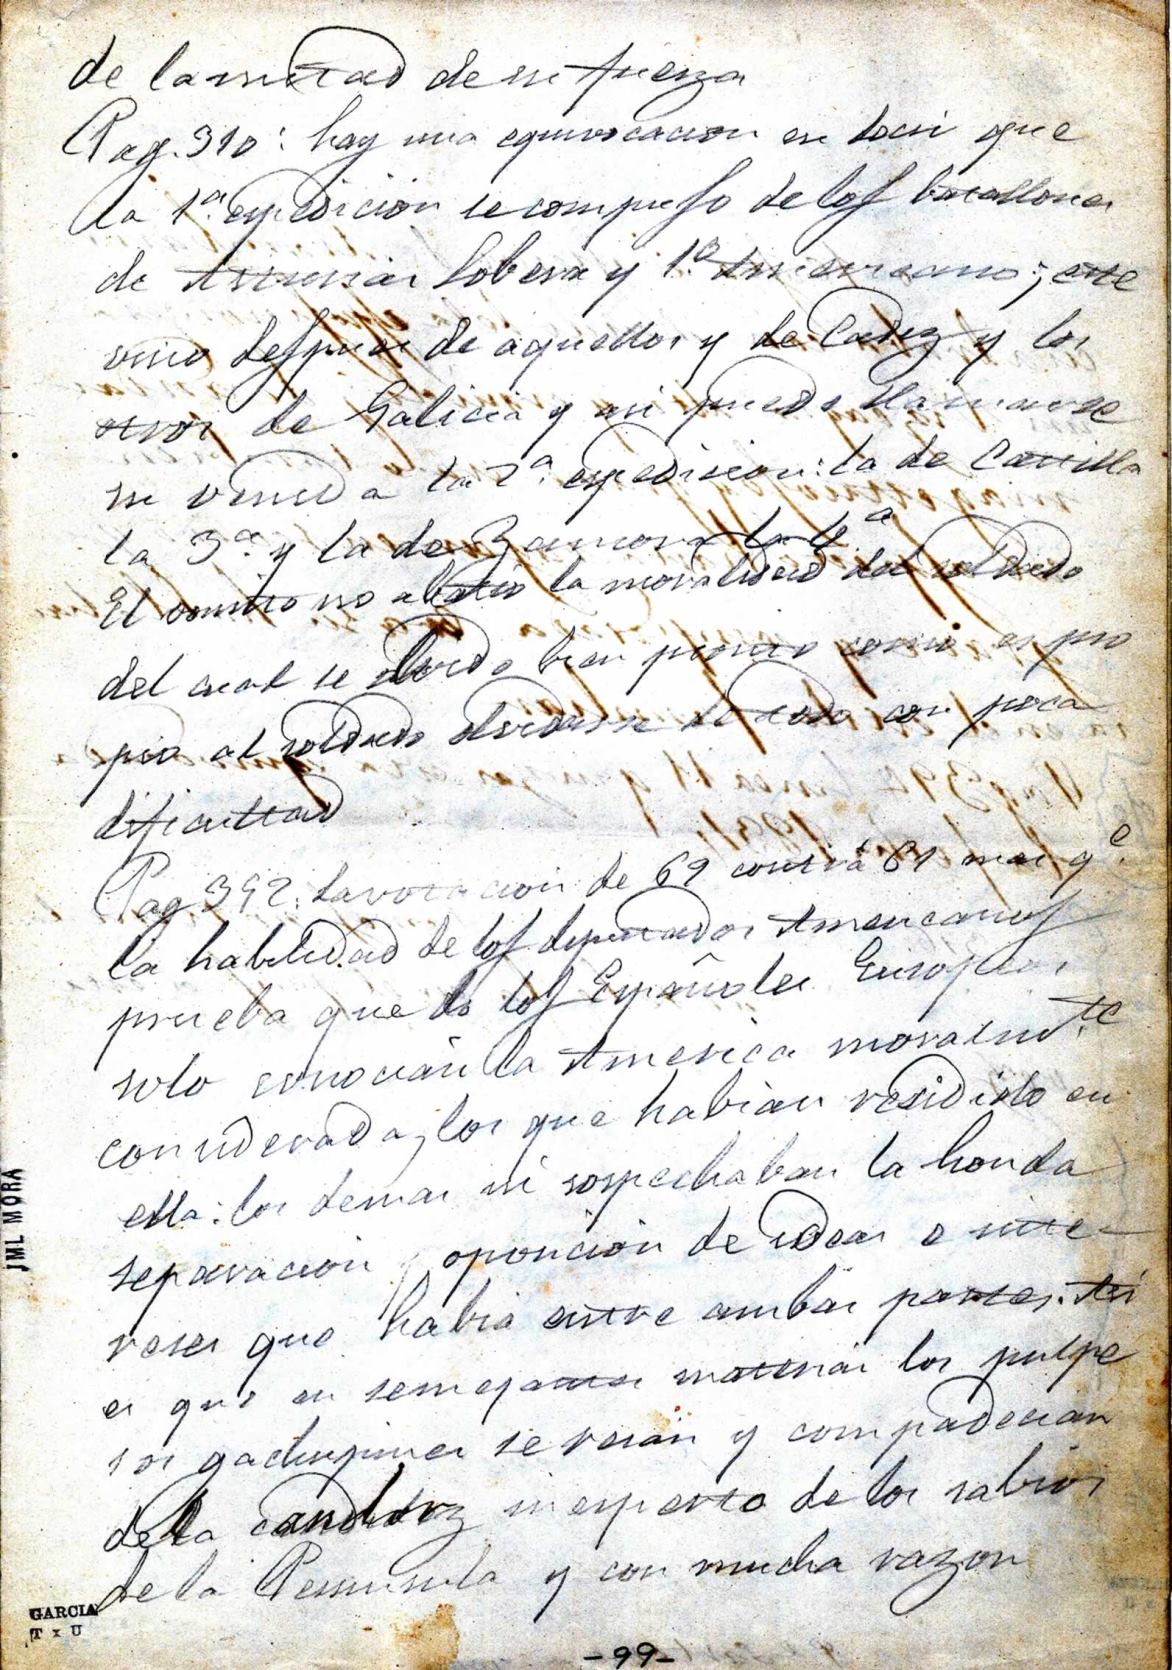 de la mitad de su fuerza
Pag. 310: hay una equivocacion en decir que
la 1ª expedicion se compuso de los batallones
de Asturias Lobera y 1º Americano; este
vino despues de aquellos y de Cadiz y los
otros de Galicia y asi puede llamarse
su venida la 2ª. expedicion: la de Castilla
la 3ª. y la de Zamora la 4ª
El vomito no abatio la moralidad del soldado
del cual se olvido bien pronto como es pro
pio al soldado olvidarse de todo con poca
dificultad
Pag 392: La votacion de 69 contra 61 mas qe.
la habilidad de los diputados Americanos
prueba que de los Españoles Europeos
solo conocian la America moralmte
considerada, los que habian residido en
ella: los demas ni sospechaban la honda
separacion y oposicion de ideas e inte-
reses que habia entre ambas partes. Asi
es que en semejantes materias los pulpe
ros gachupines se reian y compadecian
de la candidez inesperta de los sabios
de la Peninsula y con mucha razon
JML MORA
GARCIA
T x U
-99-